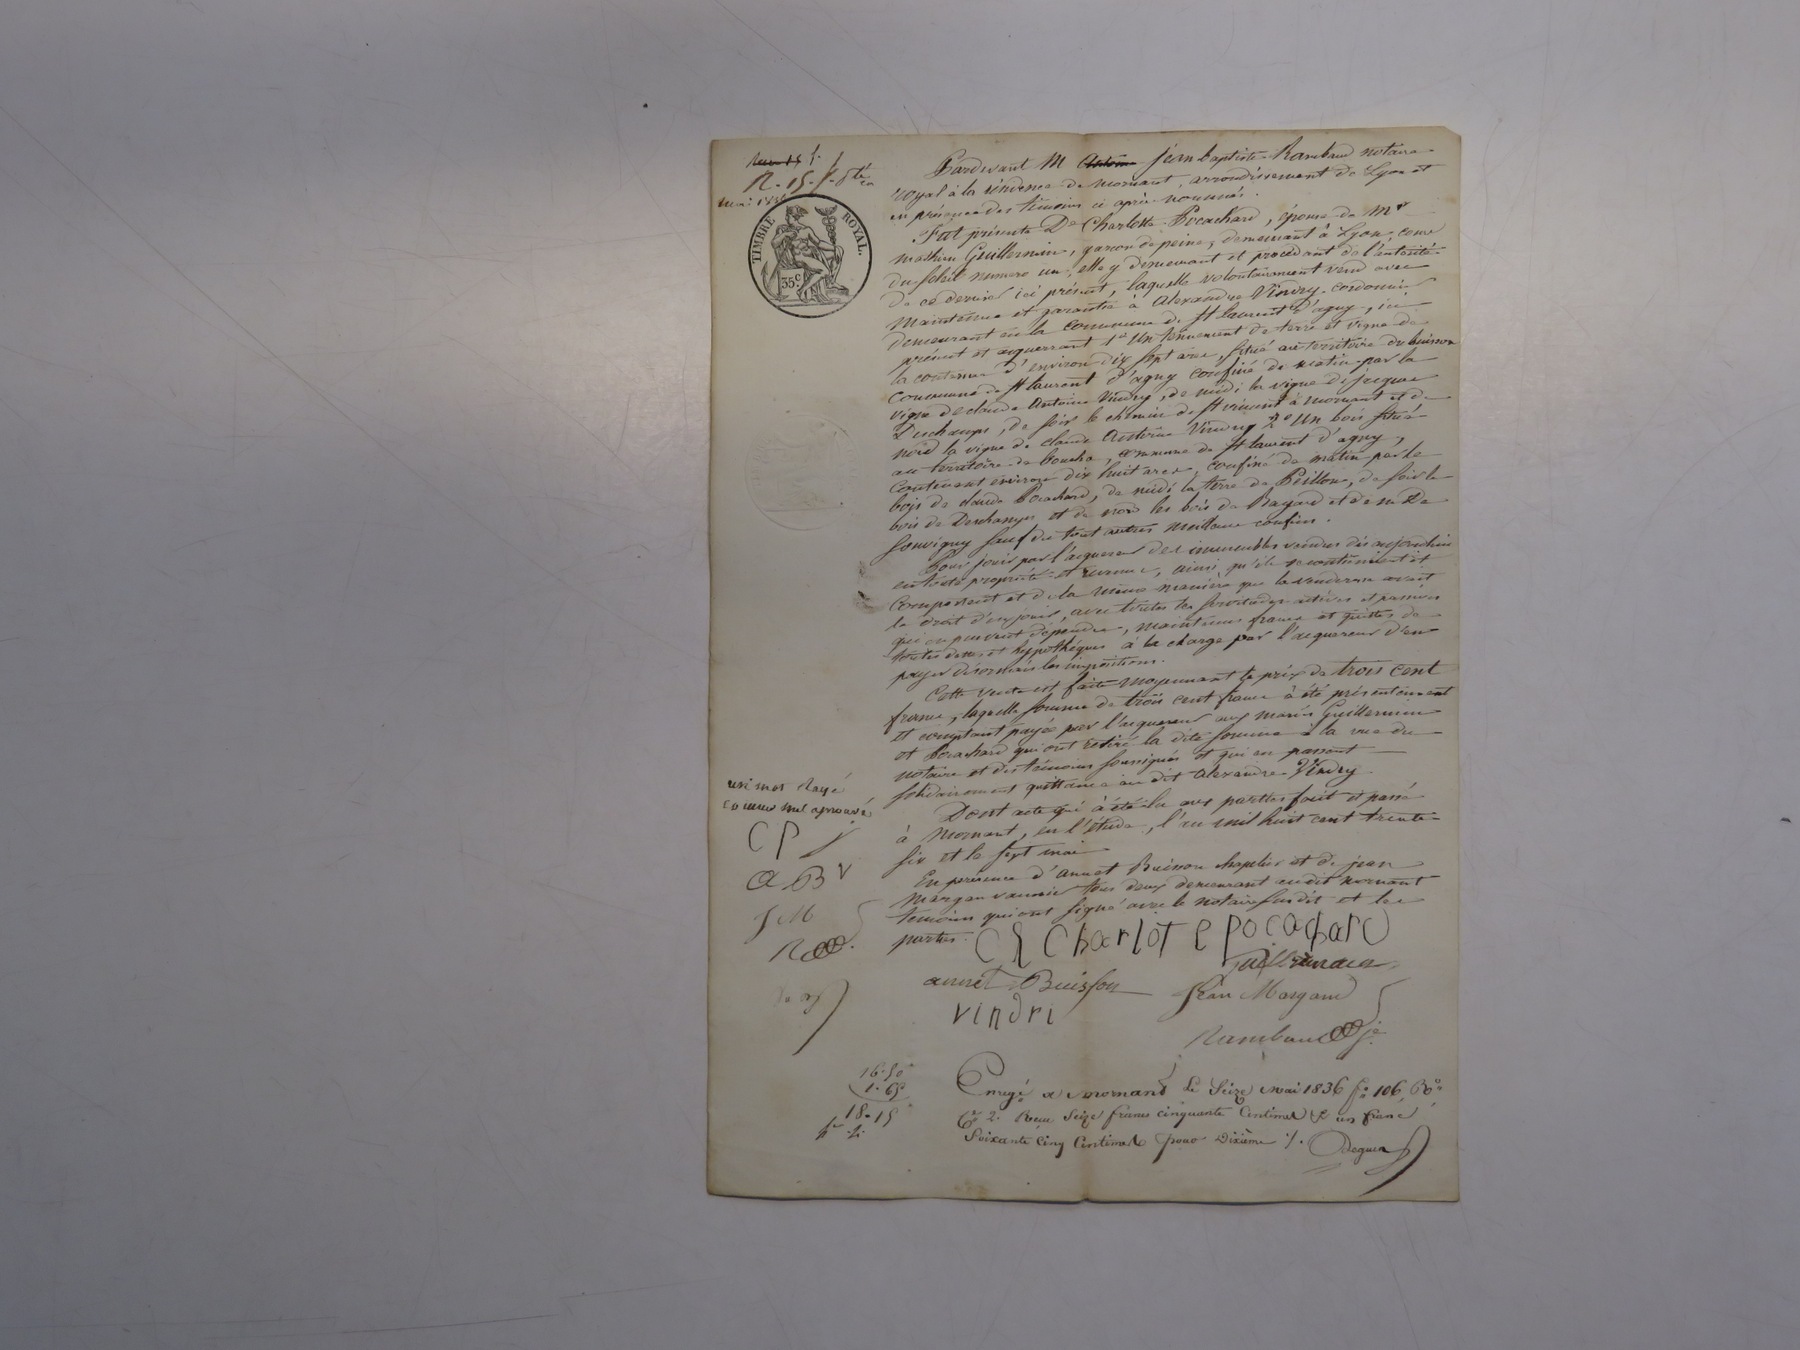 R. 15.
mai
TIMBRE ROYAL.
35c
Pardevant M Antoine jean baptiste Rambaud notaire
royal à la résidence de mornant, arrondissement de Lyon et
en présence des témoins ci après nommés.
Fut présente De Charlotte Pocachard, épouse de Mr
mathieu Guillermin, garçon de peine, demeurant à Lyon, cour
du soleil numero un, elle y demeurant et procédant de l'autorité
de ce dernier ici présent, laquelle volontairement vend avec
maintenue et garantie à alexandre Vindry cordonnier
demeurant en la commune de st laurent d'agny, ici
présent et acquerrant 1° Un tenement de terre et vigne de
la contenue d'environ dix sept ares, situé au territoire du buisson
commune de st laurent d'agny confiné de matin par la
vigne de claude Antoine Vindry, de midi la vigne de jacques
Deschamps, de soir le chemin de st vincent à mornant et de
nord la vigne de claude Antoine Vindry 2° Un bois situé
au territoire de boucha, commune de st laurent d'agny,
contenant environ dix huit ares, confiné de matin par le
bois de claude Pocachard, de midi la terre de Peillon, de soir le
bois de Deschamps et de nord les bois de Bagard et de m De
Souvigny sauf du tout autres meilleurs confins.
Pour jouir par l'acquereur des immeubles vendus dès aujourd'hui
en toute propriété et revenus, ainsi qu'ils se contiennent et
comportent et de la même manière que la venderesse avait
le droit d'en jouir, avec toutes les servitudes actives et passives
qui en peuvent dépendre, maintenus francs et quittes de
toutes dettes et hypothèques à la charge par l'acquereur d'en
payer désormais les impositions.
Cette vente est faite moyennant le prix de trois cent
francs, laquelle somme de trois cent francs à été présentement
et comptant payée par l'acquereur aux mariés Guillermin
et Pocachard qui ont retiré la dite somme à la vue du
notaire et des témoins soussignés et qui en passent
solidairement quittance au dit alexandre Vindry
Dont acte qui à été lu aux parties fait et passé
à Mornant, en l'étude, l'an mil huit cent trente
six et le sept mai
En présence d'annet Buisson chapelier et de jean
Margan vannier tous deux demeurant audit mornant
temoins qui ont signé avec le notaire susdit et les
parties.
un mot rayé
comme nul aprouvé
CP
a B V
J M
R
Ch Charlote pocachard
Guillermin
annet Buisson
Jean Margand
vindri
Rambaud
16-50
1-65
18-15
Enregé a mornant le Seize mai 1836 fo 106, Ro
Ce 2. Recu Seize francs cinquante Centimes & un franc
Soixante cinq Centimes pour Dixième